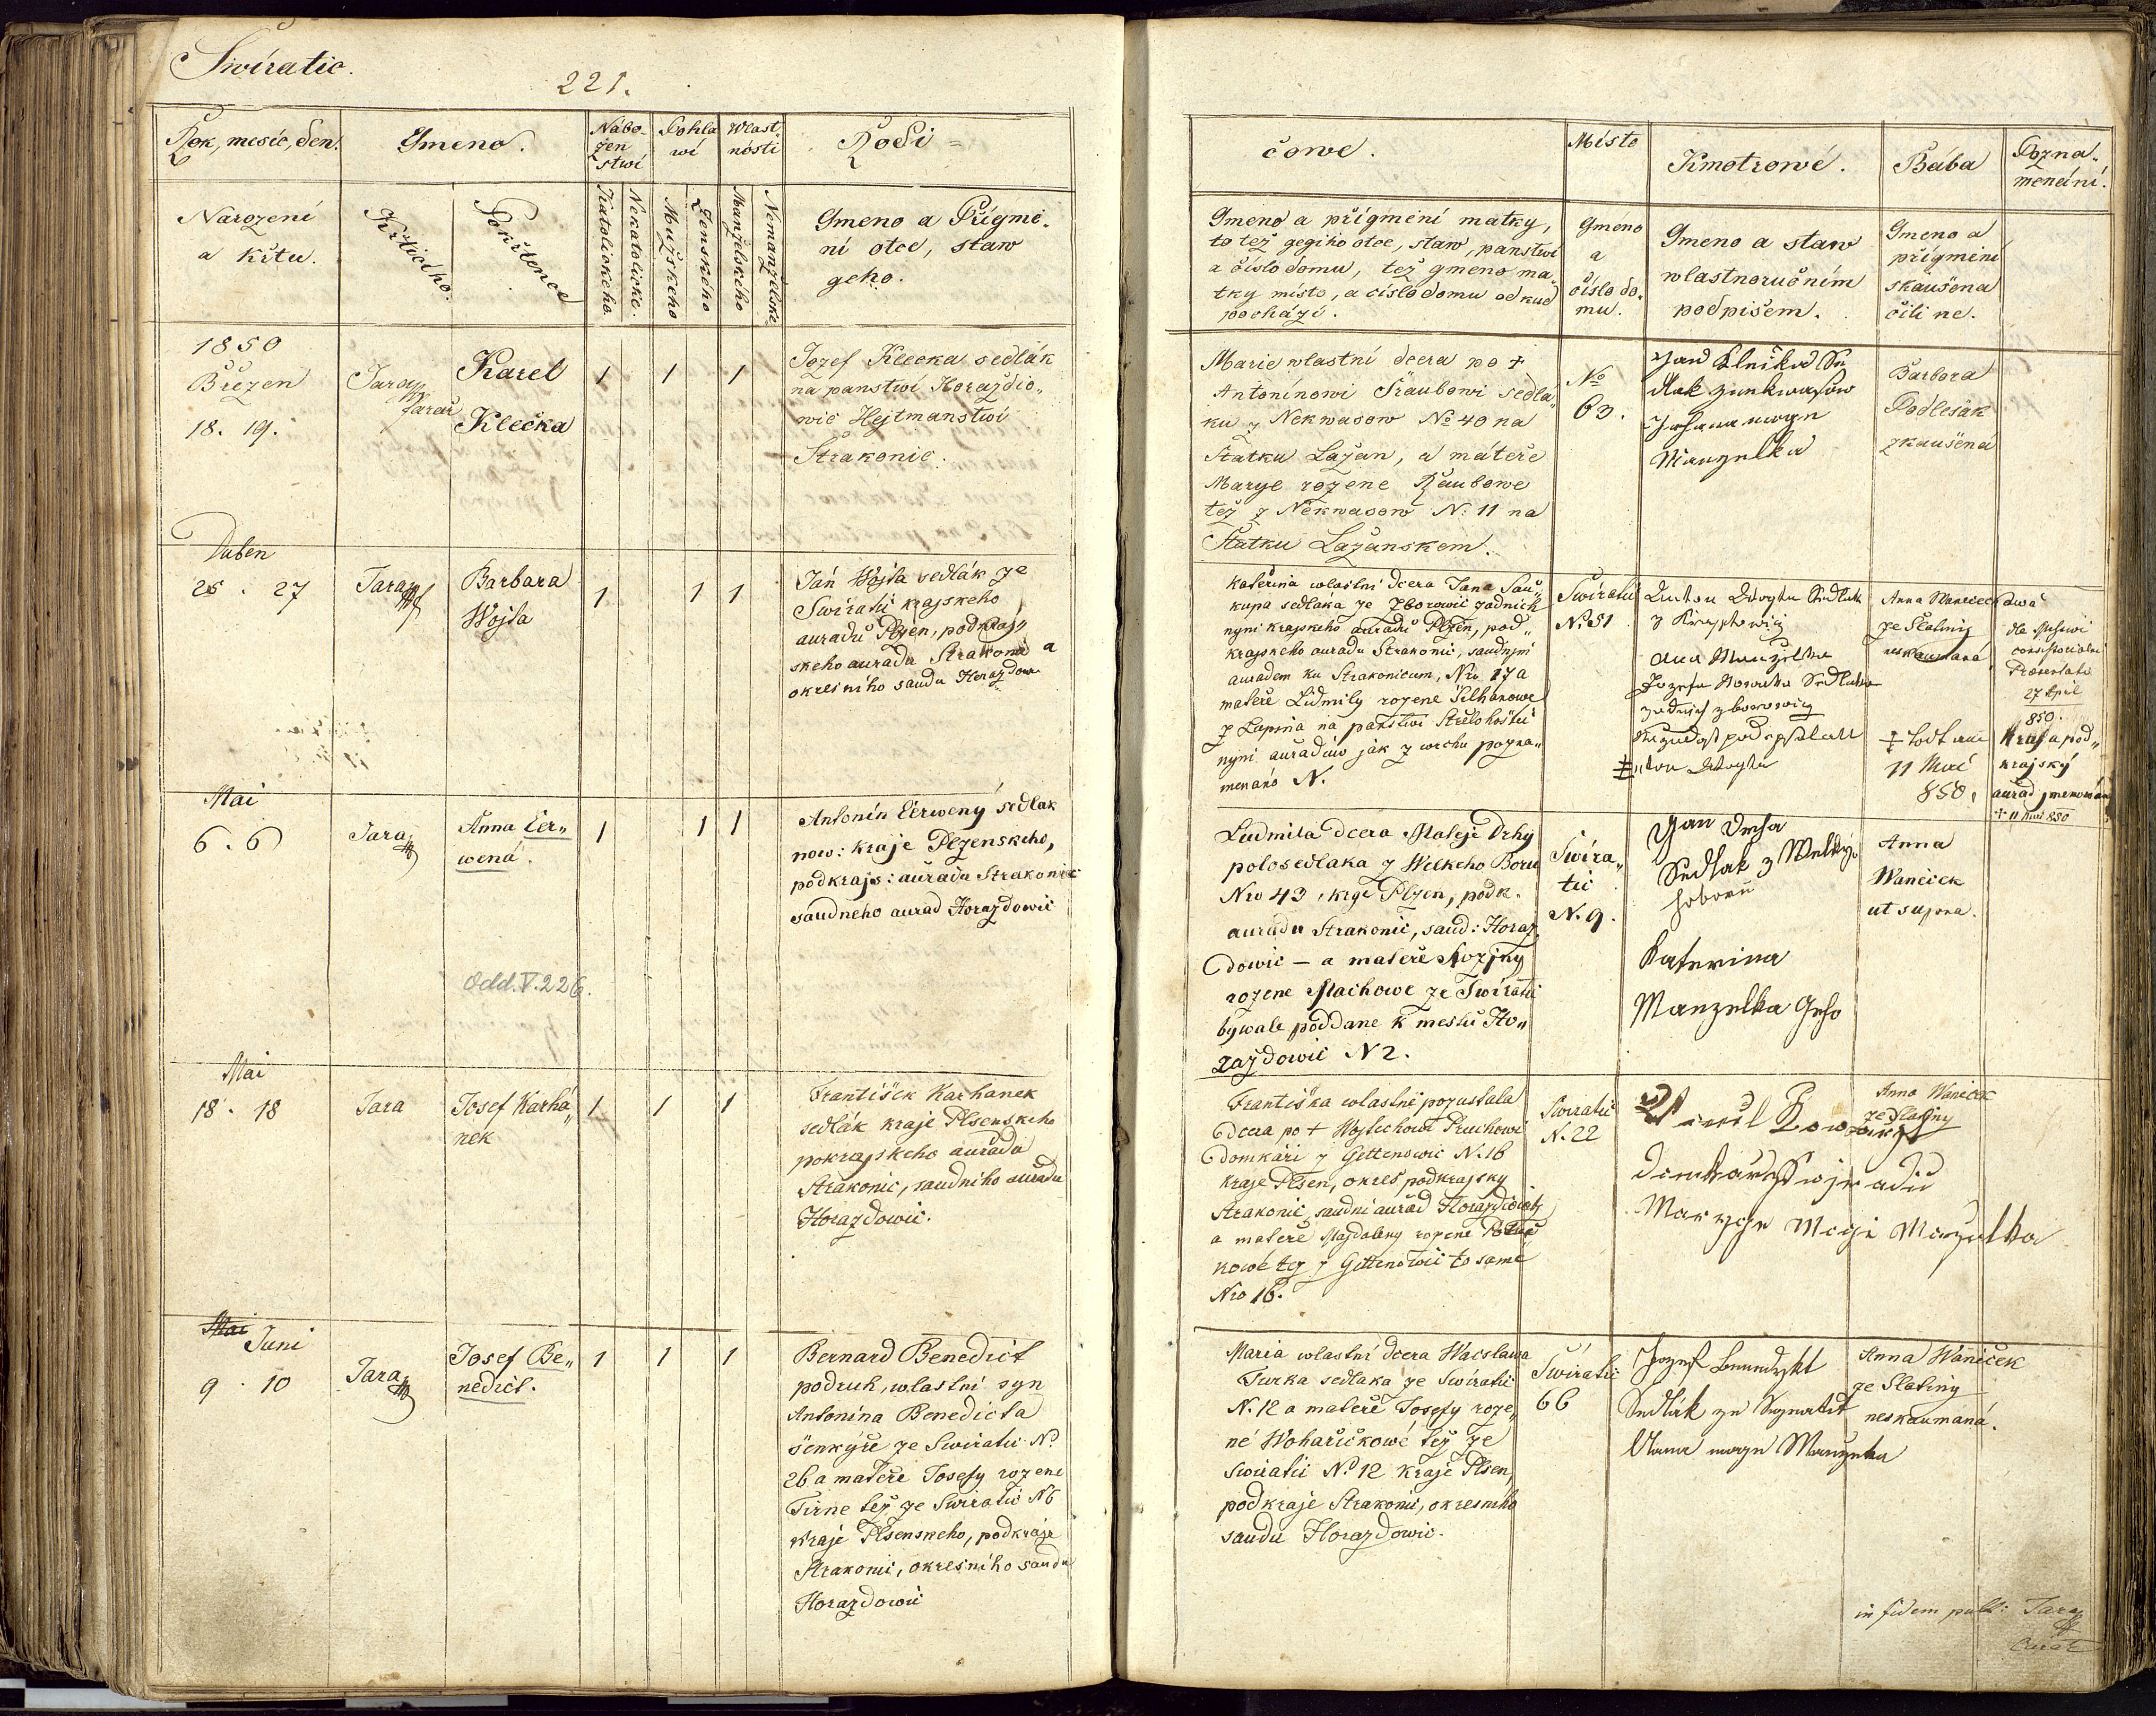 Swiratic.
221.
Rok, mesic, den.
Gmeno.
Nábo-
žen
stwí
Pohla
wí
Wlast
nósti
Rodi =
Narození
a Křtu.
Křticího.
Pokřtence
Katolickeho.
Nekatolicke.
Mužskeho
Ženskeho
Manželskeho
Nemanželske
Gmeno a Přigmé-
ní otce, staw
geho.
1850
Březen
18. 19.
Jara
farář
Karel
Klečka
1 1 1
Jozef Klecka sedlák
na panstwi Horazdio„
wic Hejtmanstwi
Strakonic.
Duben
25 . 27
Jara
Barbara
Wojta
1 1 1
Ján Wojta sedlák ze
Swiratic krajskeho
auradu Plzen, podkraj„
skeho auradu Strakonic a
okresniho saudu Horazdow
Mai
6 . 6
Jara
Anna Čer„
wená.
1 1 1
Antonin Čerweny sedlak
now: kraje Plzenskeho,
podkrajs: auradu Strakonic
saudneho aurad Horazdowic
Odd. V. 226.
Mai
18 . 18
Jara
Josef Karha„
nek
1 1 1
František Karhanek
sedlák kraje Plsenskeho
pokrajskeho auradu
Strakonic, saudniho auradu
Horazdowic.
Mai
Juni
9 . 10
Jara
Josef Be„
nedict.
1 1 1
Bernard Benedict
podruh, wlastni syn
Antonina Benedicta
šenkýře ze Swiratic No
26 a mateře Josefy rozene
Tirne též ze Swiratic N6
kraje Plsenskeho, podkraje
Strakonic, okresniho saudu
Horazdowic
čowe.
Místo
Kmotrowé.
Bába
Pozna„
menáni.
Gmeno a přigmění matky,
to též gegiho otce, staw, panstwi
a čislo domu, též gmeno ma„
tky místo, a cislo domu od kud
pochází.
Gmeno
a
čislo do„
mu.
Gmeno a staw
wlastnoručním
podpišem.
Gmeno a
přigmění
skaušena
čili ne.
Marie wlastní dcera po †
Antonínowi Sraubowi sedla„
ku z Nekwasow No 40 na
Statku Lažan, a mátěře
Marye rozene Raubowe
též z Nekwasow N: 11 na
Statku Lažanskem.
No
63.
Jan Klečka Se
dlak z Nekwasow
Johana moge
Manzelka
Barbora
Podlešak
zkaušená
Kateřina wlastni dcera Jana Sau„
kupa sedláka ze Zborowic zadnich
nyni krajskeho auradu Plzen, pod„
krajskeho auradu Strakonic, saudnjm
auradem ku Strakonicum, Nro 17 a
mateře Lidmily rozene
z Lapina na panstwi Střelohoštic
nyni auraduw jak z wrchu pozna„
menáno N.
Swiratic
N. 51
Anton Woyta Sedlak
z
Ana Manzelka
Jozefa Sedlaka
zadnich zborowicz
podepsal
Anton Woyta
Anna Wanecek
ze Slatiny
neskaumaná
† Tod am
11 Mai
850,
27 April
850.
Kraj a pod„
krajský
aurad jmenowán
† 11 Mai 850
Ludmila dcera Mateje Drhy
polosedlaka z Welkeho Boru
Nro 43, krge Plzen, podk.
auradu Strakonic, saud: Horaz„
dowic - a mateře Rozjny
rozene Machowe ze Swiratic
bywale poddane k mestu Ho„
razdowic N 2.
Swira„
tic
N. 9.
Jan Drha
Sedlak z Welkyho
boru
Katerina
Manzelka Geho
Anna
Wanicek
ut supra.
Frantiska wlastni pozustala
dcera po † Wojtechowi Pruchowi
domkáři z Gettenowic N. 16
kraje Plsen, okres podkrajsky
Strakonic, saudni aurad Horazdiowic
a mateře Magdaleny rozene
kowé tez z Gettenowic to samé
Nro 16.
Swiratic
N. 22
Marzye Mogi Manzelka
Anna Wanicek
ze Slatiny
Maria wlastní dcera Wacslawa
Turka sedlaka ze Swiratic
N. 12 a mateře Josefy roze„
né Wohařičkowé též ze
Swiratic No 12 kraje Plsen,
podkraje Strakonic, okresniho
saudu Horazdowic.
Swiratic
66
Jozef Benedykt
Sedlák ze
Anna moge Manzelka
Anna Wániček
ze Slatiny
neskaumaná.
in fidem publ: Jara
Curat